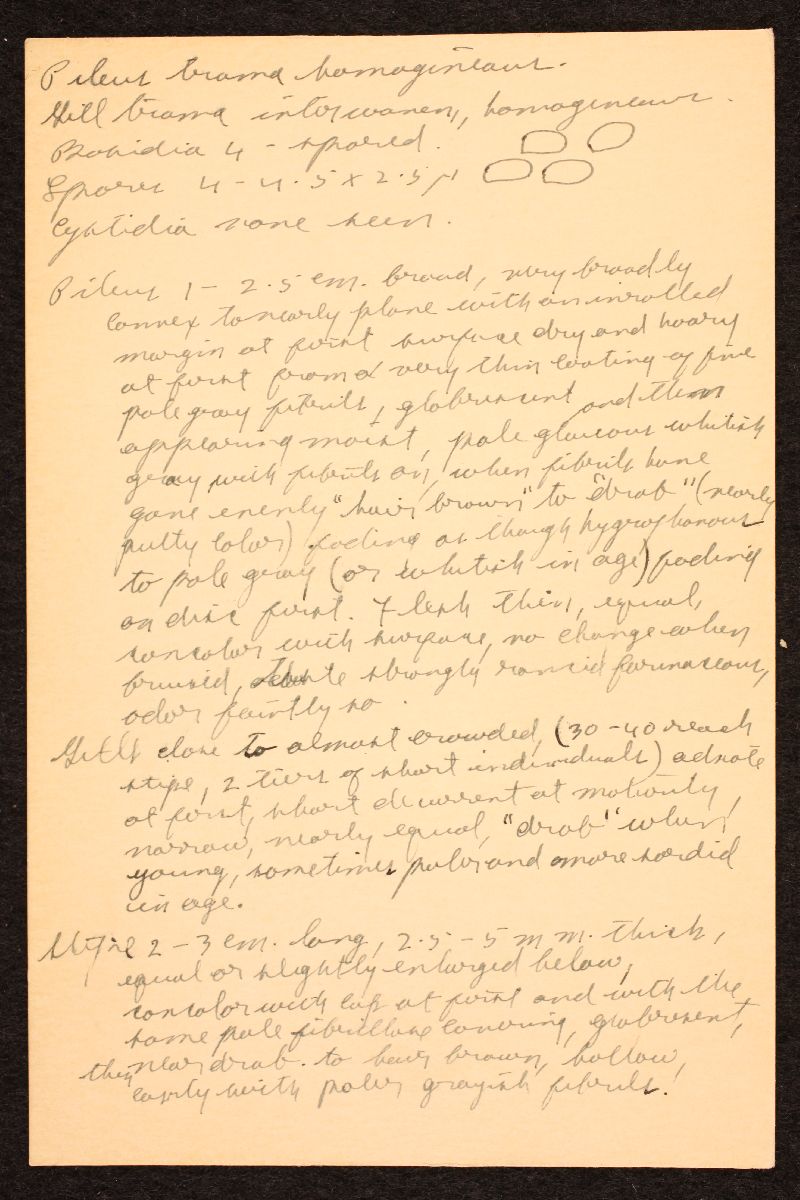 Pileus trama homogineous.
Gill trama interwoven, homogineous.
Basidia 4-spored.
Spores 4-4.5 x 2.5 µ
Cystidia none seen.
Pileus 1-2.5 cm. broad, very broadly
convex to nearly plane with an inrolled
margin at first surface dry and hoary
at first from a very thin coating of fine
pale gray fibrils, glabrescent and then
appearing moist, pale glaucous whitish
gray with fibrils on, when fibrils have
gone evenly "hair brown" to "drab" (nearly
putty color) fading as though hygrophanous
to pale gray (or whitish in age) fading
on disc first. Flesh thin, equal,
concolor with surface, no change when
bruised, taste strongly rancid farinaceous,
odor faintly so.
Gills close to almost crowded, (30-40 reach
stipe, 2 tiers of short individuals) adnate
at first, short decurrent at maturity,
narrow, nearly equal, "drab" when
young, sometimes paler and more sordid
in age.
Stipe 2-3 cm. long, 2.5-5 m m. thick,
equal or slightly enlarged below,
concolor with cap at first and with the
same pale fibrillose covering, glabrescent,
then near drab. to hair brown, hollow,
cavity with paler grayish fibrils.